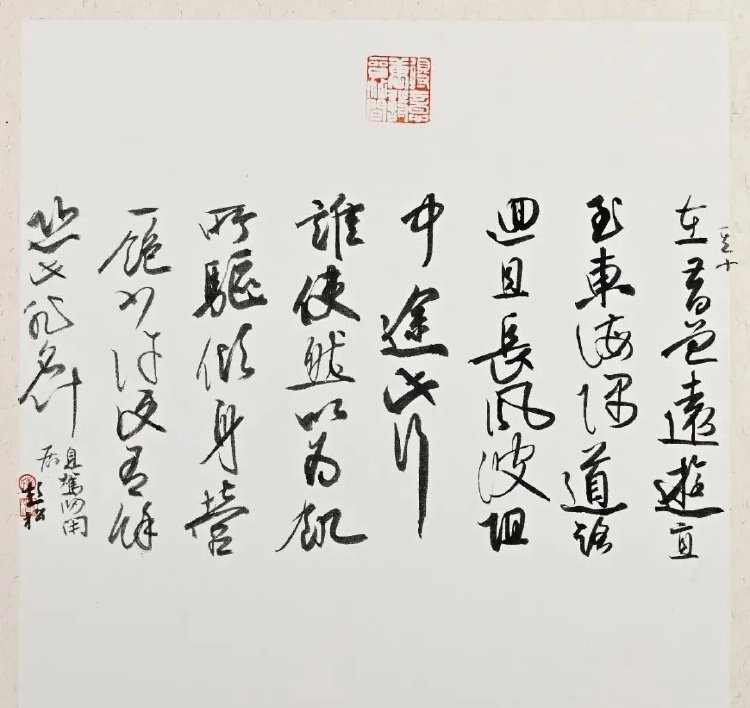 在昔曾遠遊直
至東海隅道路
迴且長風波阻
中途此行
誰使然以為飢
所驅傾身營
一飽少許便有餘
恐此非名計
息駕歸閑
居